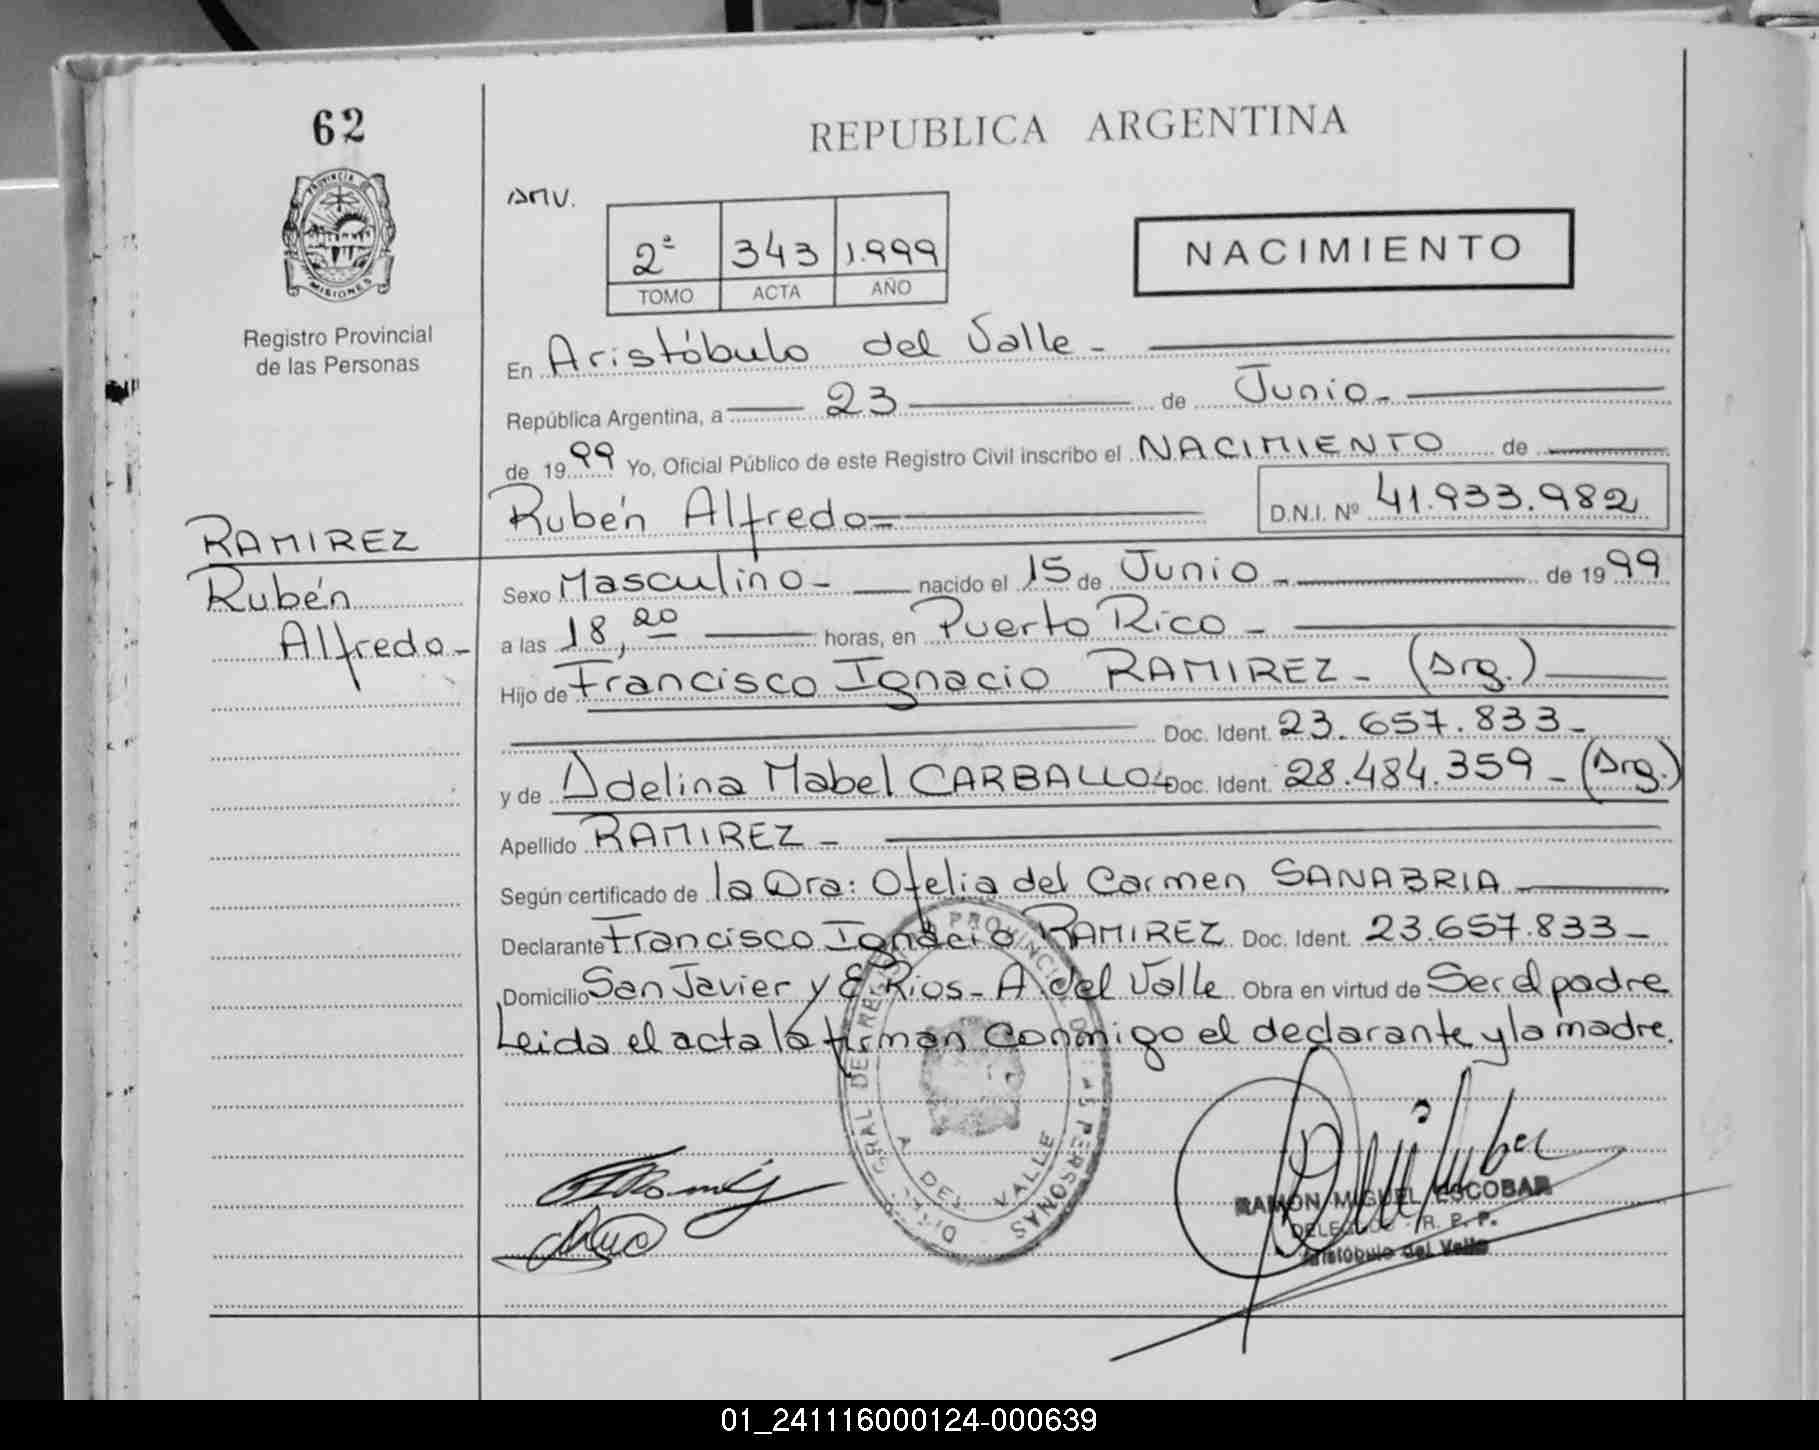 62
REPUBLICA ARGENTINA
PROVINCIA DE
MISIONES
Registro Provincial
de las Personas
AMV.
2ª 343 1.999
TOMO ACTA AÑO
NACIMIENTO
En Aristóbulo del Valle -
República Argentina, a 23 de Junio -
de 1999 Yo, Oficial Público de este Registro Civil inscribo el NACIMIENTO de
Rubén Alfredo= D.N.I. Nº 41.933.982
RAMIREZ
Rubén
Alfredo-
Sexo Masculino - nacido el 15 de Junio - de 1999
a las 18,20 horas, en Puerto Rico -
Hijo de Francisco Ignacio RAMIREZ - (Arg.)
Doc. Ident. 23.657.833-
y de Adelina Mabel CARBALLO- Doc. Ident. 28.484.359 - (Arg.)
Apellido RAMIREZ -
Según certificado de la Dra: Ofelia del Carmen SANABRIA
Declarante Francisco Ignacio RAMIREZ Doc. Ident. 23.657.833-
Domicilio San Javier y E. Rios - A. del Valle Obra en virtud de Ser el padre
Leida el acta la firman conmigo el declarante y la madre.
PROVINCIAL DE LAS PERSONAS
A DEL VALLE
RAMON MIGUEL ESCOBAR
DELEGADO - R. P. P.
Aristóbulo del Valle
01_241116000124-000639